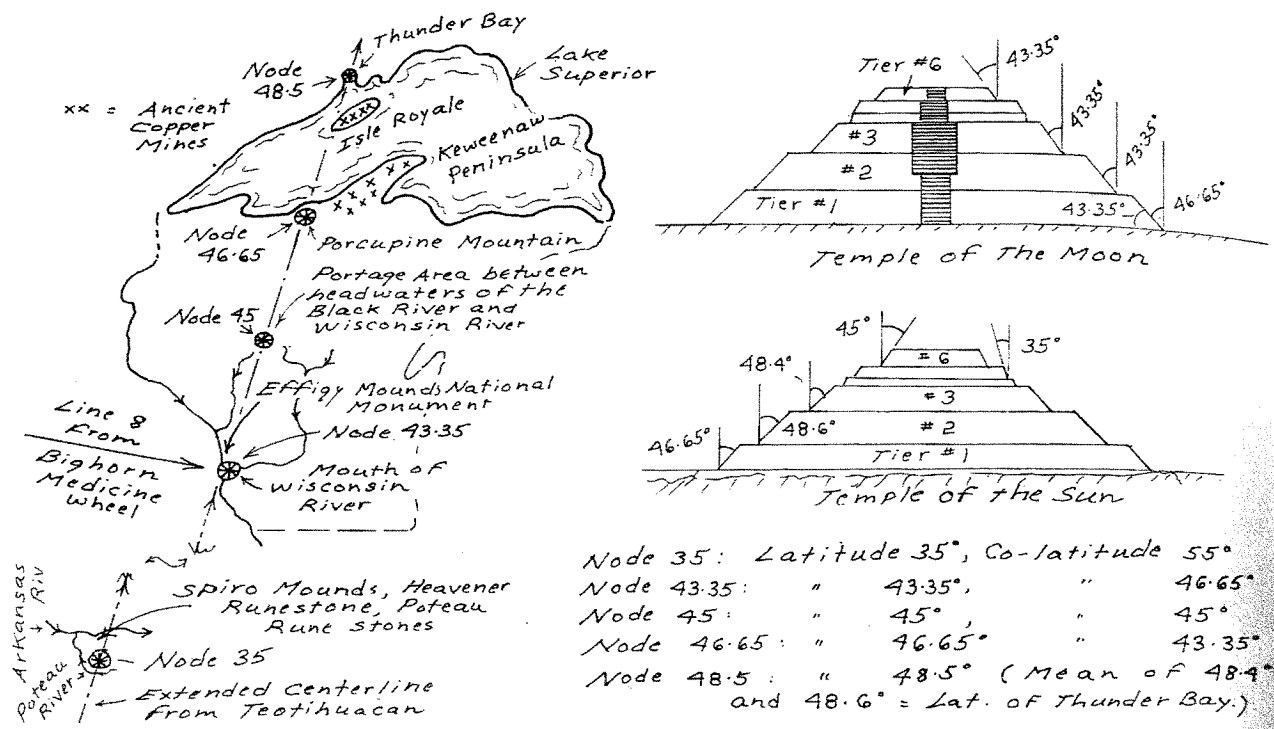 Thunder Bay
Node
48.5
Lake
Superior
xx = Ancient
Copper
Mines
xxxx
Isle Royale
Keweenaw
Peninsula
Node
46.65
Porcupine Mountain
Portage Area between
headwaters of the
Black River and
Wisconsin River
Node 45
Effigy Mounds National
Monument
Node 43.35
Line 8
From
Bighorn
Medicine
Wheel
Mouth of
Wisconsin
River
Arkansas
Riv
Spiro Mounds, Heavener
Runestone, Poteau
Rune Stones
Node 35
Poteau
River
Extended Centerline
From Teotihuacan
Tier #6
43.35°
#3
43.35°
#2
43.35°
Tier #1
43.35°
46.65°
Temple of The Moon
45°
35°
#6
48.4°
#3
48.6°
#2
46.65°
Tier #1
Temple of the Sun
Node 35: Latitude 35°, Co-latitude 55°
Node 43.35: " 43.35°, " 46.65°
Node 45: " 45°, " 45°
Node 46.65: " 46.65° " 43.35°
Node 48.5: " 48.5° (Mean of 48.4°
and 48.6° = Lat. of Thunder Bay.)